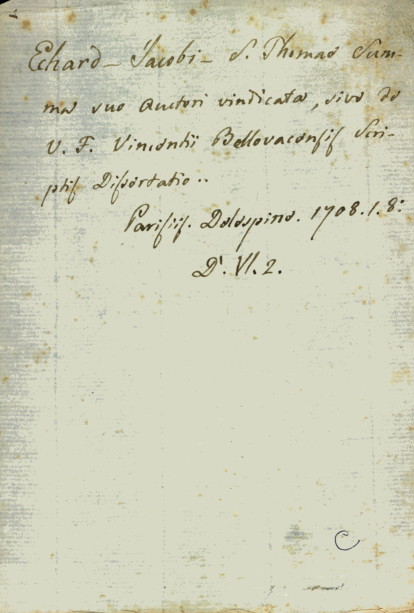 Echard - Jacobi - S. Thomae Sum-
ma suo Auctori vindicata, sive de
V. F. Vincentii Bellovacensis Scri-
ptis Dissertatio..
Parisiis. Delespine. 1708. 1. 8:
D'. VI. 2.